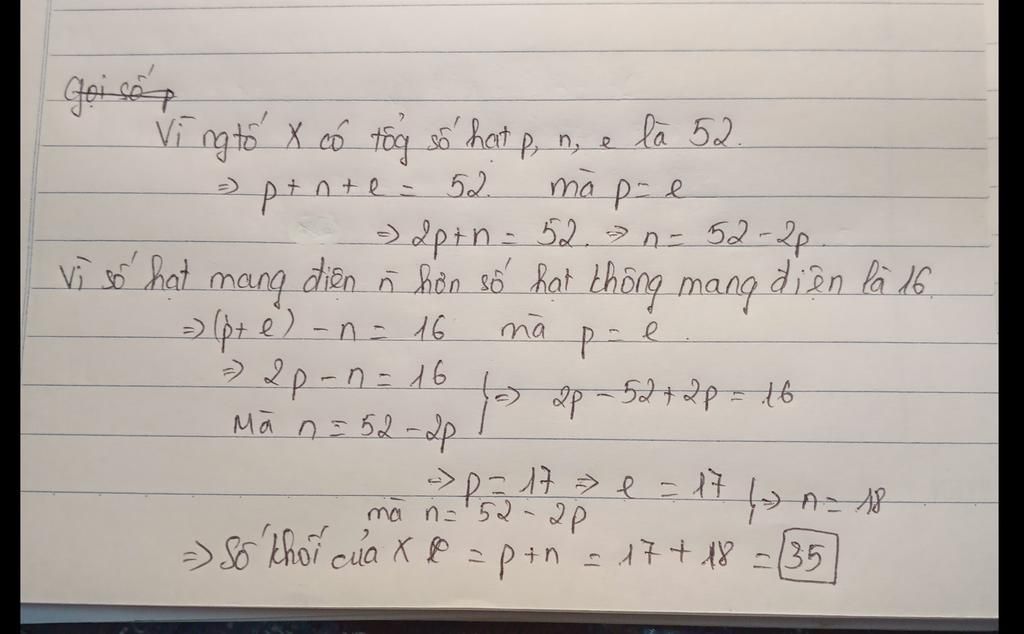 Gọi số p
Vì ngtố X có tổg số hạt p, n, e là 52.
⇒ p + n + e = 52. mà p = e
⇒ 2p + n = 52. ⇒ n = 52 - 2p.
Vì số hạt mang điện n̄ hơn số hạt không mang điện là 16.
⇒ (p + e) - n = 16 mà p = e.
⇒ 2p - n = 16
Mà n = 52 - 2p } ⇒ 2p - 52 + 2p = 16
⇒ p = 17 ⇒ e = 17
mà n = 52 - 2p } ⇒ n = 18
⇒ Số khối của X = p + n = 17 + 18 = 35